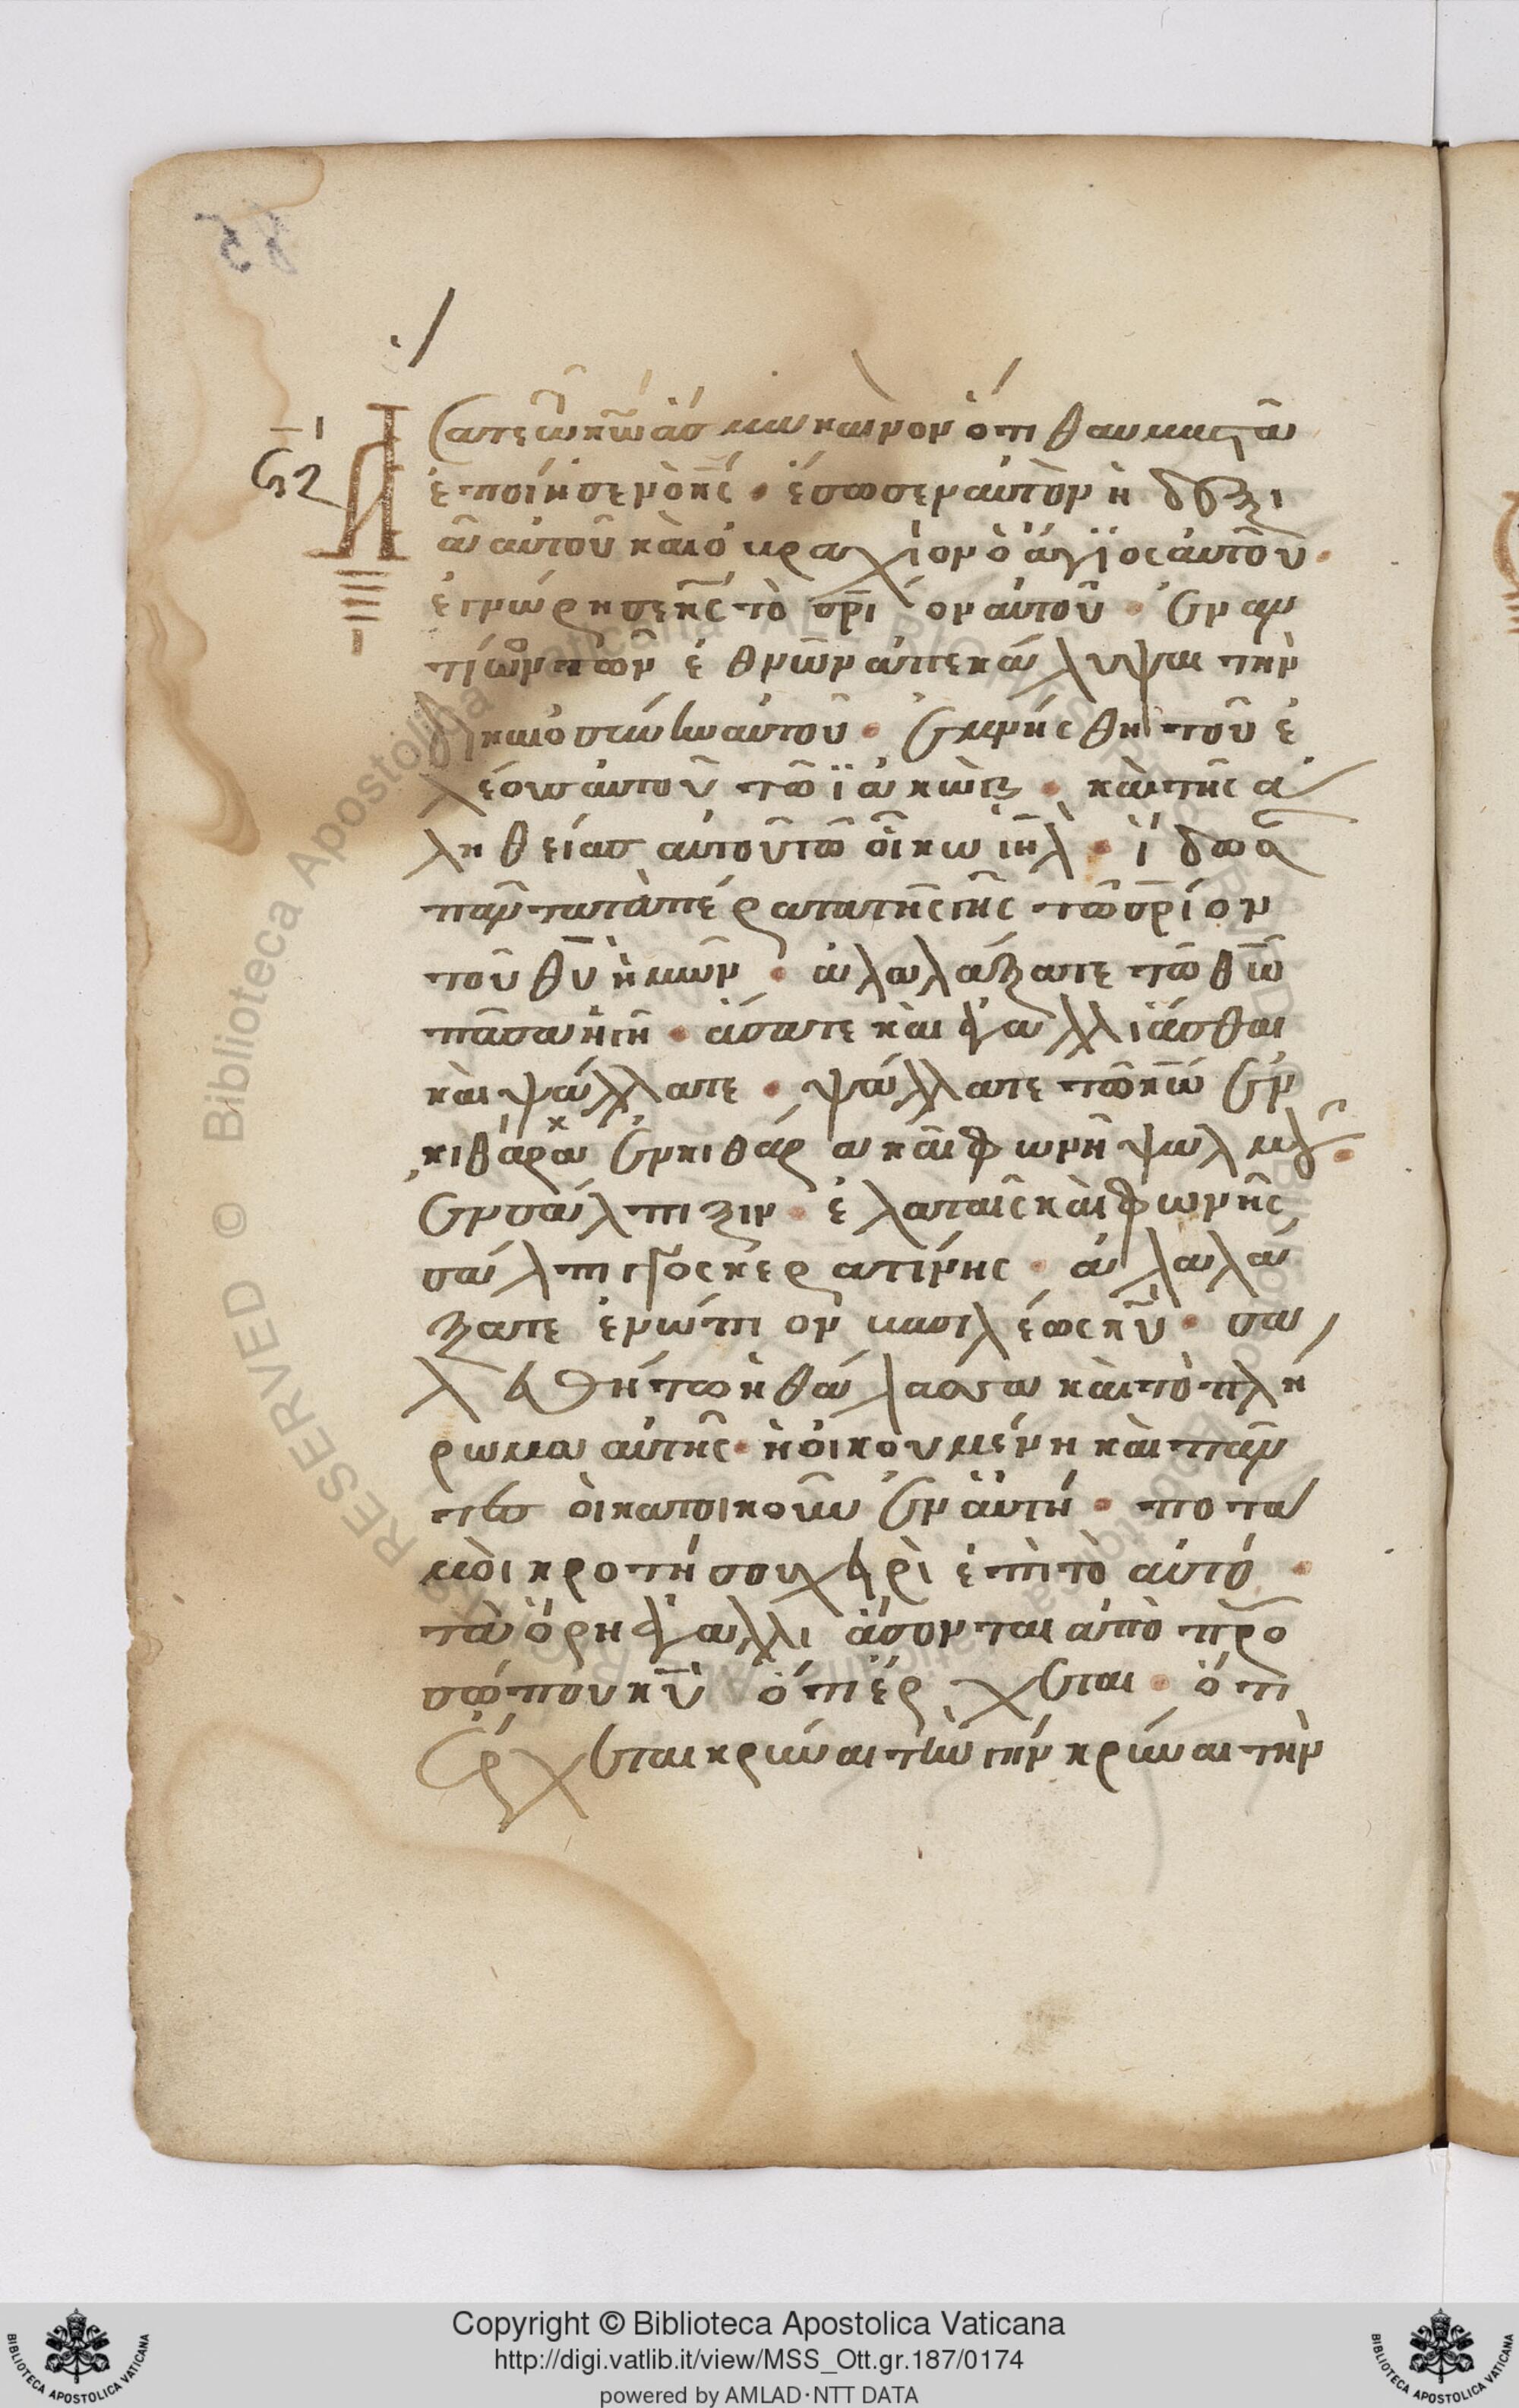 ϟζ
Ασατε τῶ κ̅ω̅ ἆσμα καινὸν ὅτι θαυμαστὰ
ἐποίησεν ὁ κ̅ς̅· ἔσωσεν αὐτὸν ἡ δεξι
ὰ αὐτοῦ καὶ ὁ βραχίον ὁ ἅγϊος αὐτοῦ·
ἐγνώρησε κ̅ς̅ τὸ σρ̅ιον αὐτοῦ· ἐναν
τίων τῶν ἐθνῶν ἀπεκάλυψαι τὴν
δικαιοσύνην αὐτοῦ· ἐμνήσθη τοῦ ἐ
λέους αὐτοῦ τῶ ϊακὼβ· καὶ τῆς ἀ
ληθείας αὐτοῦ τῶ οἴκω ι̅η̅λ̅· ἴδωσ
παντα τὰ πέρατα τῆς γῆς τῶ σρ̅ίον
τοῦ θ̅υ̅ ἡμῶν· ἀλαλάξατε τῶ θ̅ω̅
πᾶσα ἡ γῆ· ἄσατε καὶ ἀγαλλιάσθαι
καὶ ψάλλατε· ψάλλατε τῶ κ̅ω̅ ἐν
κιθάρα ἐν κιθάρα καὶ φωνῆ ψαλμοῦ·
ἐν σάλπιξιν ἐλαταῖς καὶ φωνῆς
σάλπιγγος κερατίνης· ἀλαλά
ξατε ἐνώπιον βασιλέως κ̅υ̅· σα
λευθήτω ἡ θάλασσα καὶ τὸ πλή
ρωμα αὐτῆς· ἡ οἰκουμένη καὶ πάν
τες οἱ κατοικοῦν ἐν αὐτῆ· ποτα
μοὶ κροτήσουν χειρὶ ἐπὶ τὸ αὐτό·
τὰ ὄρη ἀγαλλιάσονται ἀπὸ προ
σώπου κ̅υ̅ ὅτι ἔρχεται· ὅτι
ἔρχεται κρίναι τὴν γήν κρίναι τὴν
Copyright © Biblioteca Apostolica Vaticana
http://digi.vatlib.it/view/MSS_Ott.gr.187/0174
powered by AMLAD·NTT DATA